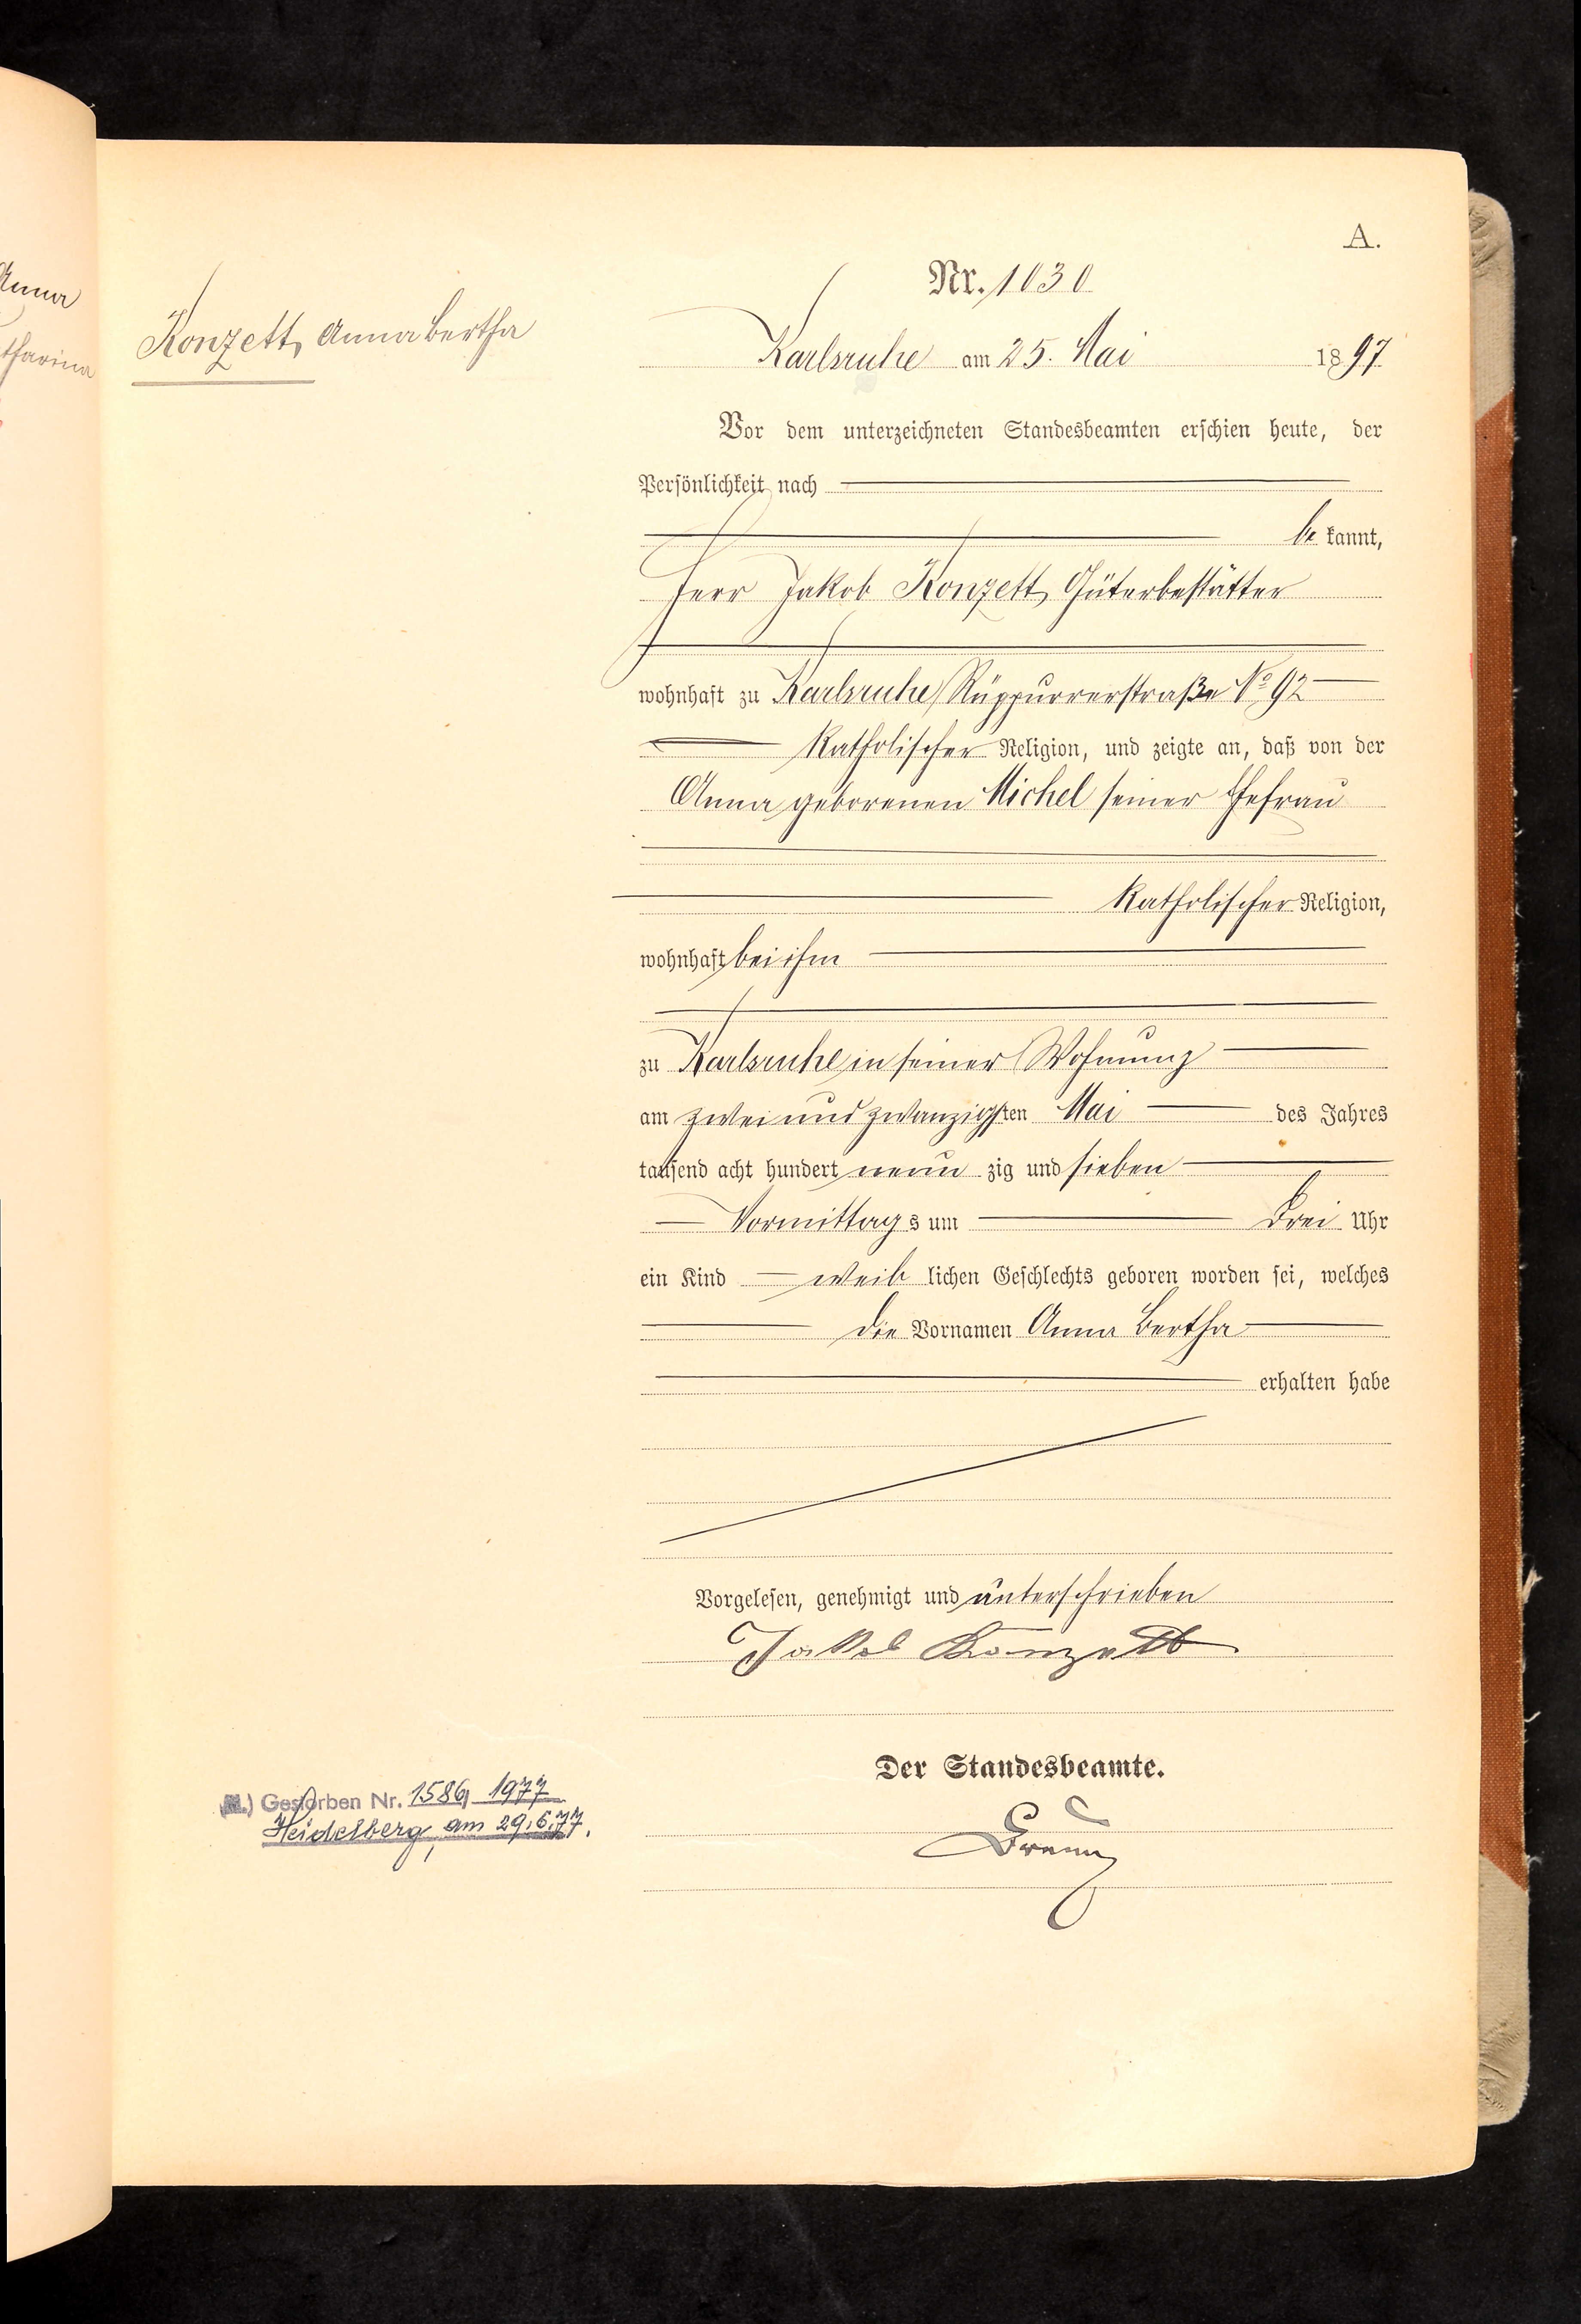 A.
Nr. 1030
Konzett, Anna Bertha
Karlsruhe am 25. Mai 1897
Vor dem unterzeichneten Standesbeamten erschien heute, der
Persönlichkeit nach
be kannt,
Herr Jakob Konzett, Güterbestätter
wohnhaft zu Karlsruhe, Rüppurrerstraße No 92
katholischer Religion, und zeigte an, daß von der
Anna geborenen Michel seiner Ehefrau
katholischer Religion,
wohnhaft bei ihm
zu Karlsruhe in seiner Wohnung
am zwei und zwanzigsten Mai des Jahres
tausend acht hundert neun zig und sieben
Vormittags um drei Uhr
ein Kind weib lichen Geschlechts geboren worden sei, welches
die Vornamen Anna Bertha
erhalten habe
Vorgelesen, genehmigt und unterschrieben
Jakob Konzett
Der Standesbeamte.
Gestorben Nr. 1586, 1977
Heidelberg, am 29.6.77.
Anna
tharina